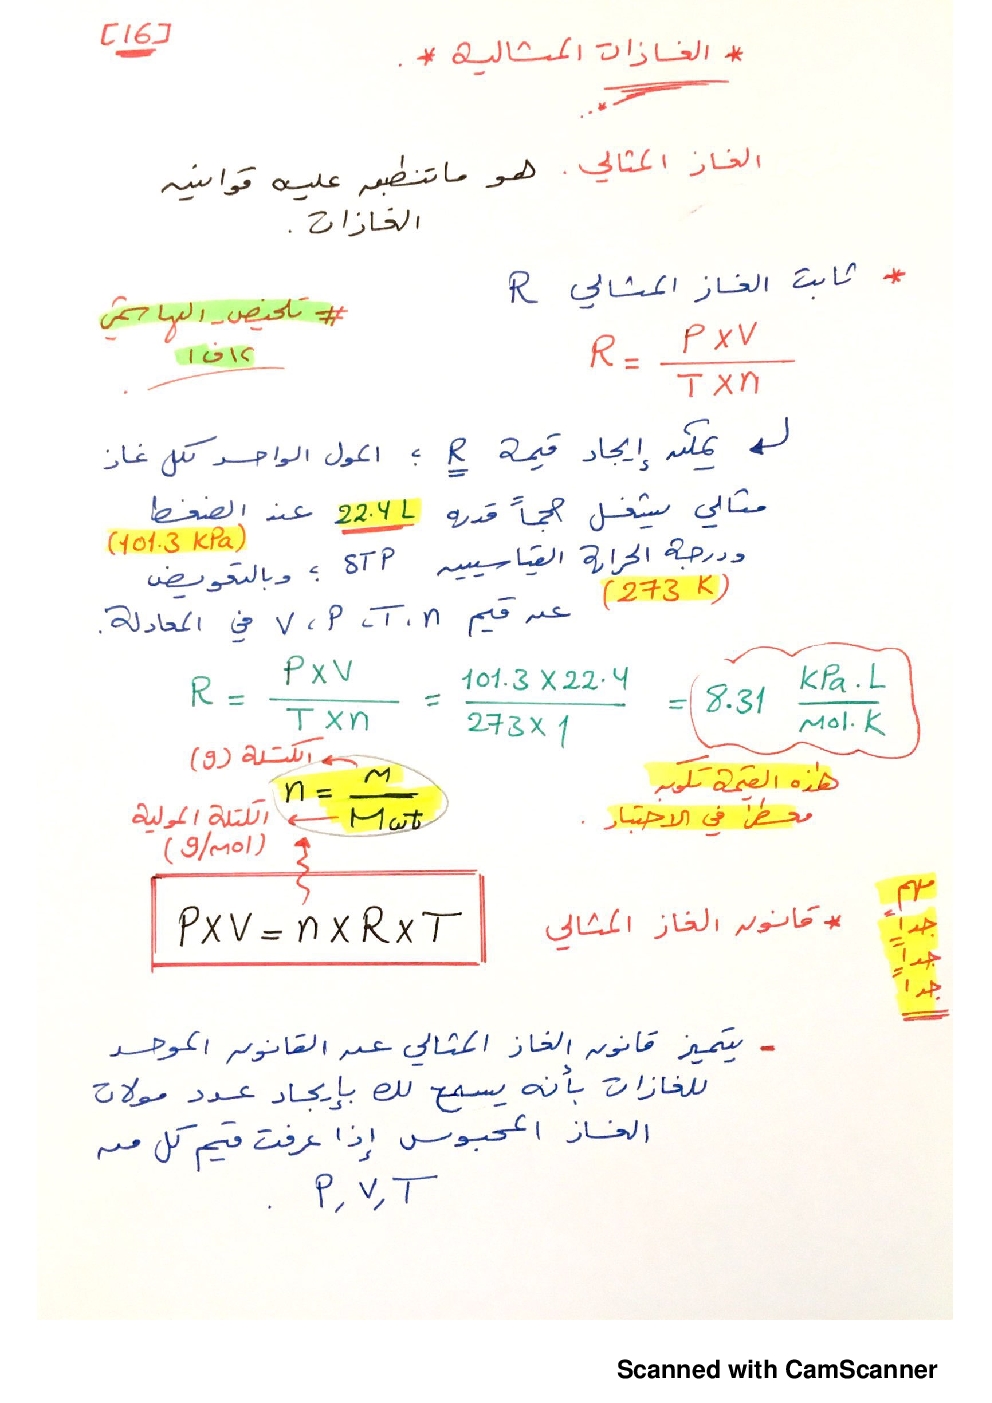 [16]
* الغازات المثالية *
الغاز المثالي . هو ما تنطبق عليه قوانين
الغازات .
* ثابت الغاز المثالي R
# تلخيص_الهاشمي
كاف1
R = P x V / T x n
يمكن إيجاد قيمة R ؛ المول الواحد لكل غاز
مثالي يشغل حجماً قدره 22.4 L عند الضغط
(101.3 KPa)
ودرجة الحرارة القياسيين STP ؛ وبالتعويض
(273 K)
عن قيم V ، P ، T ، n في المعادلة.
R = P x V / T x n = 101.3 x 22.4 / 273 x 1 = 8.31 KPa . L / mol . K
الكتلة (g)
n = M / Mwt
الكتلة المولية
(g/mol)
هذه القيمة تكون
معطى في الاختبار .
مهم
جداً
جداً
جداً
* قانون الغاز المثالي
P x V = n x R x T
- يتميز قانون الغاز المثالي عن القانون الموحد
للغازات بأنه يسمح لك بإيجاد عدد مولات
الغاز المحبوس إذا عرفت قيم كل من
P , V , T .
Scanned with CamScanner